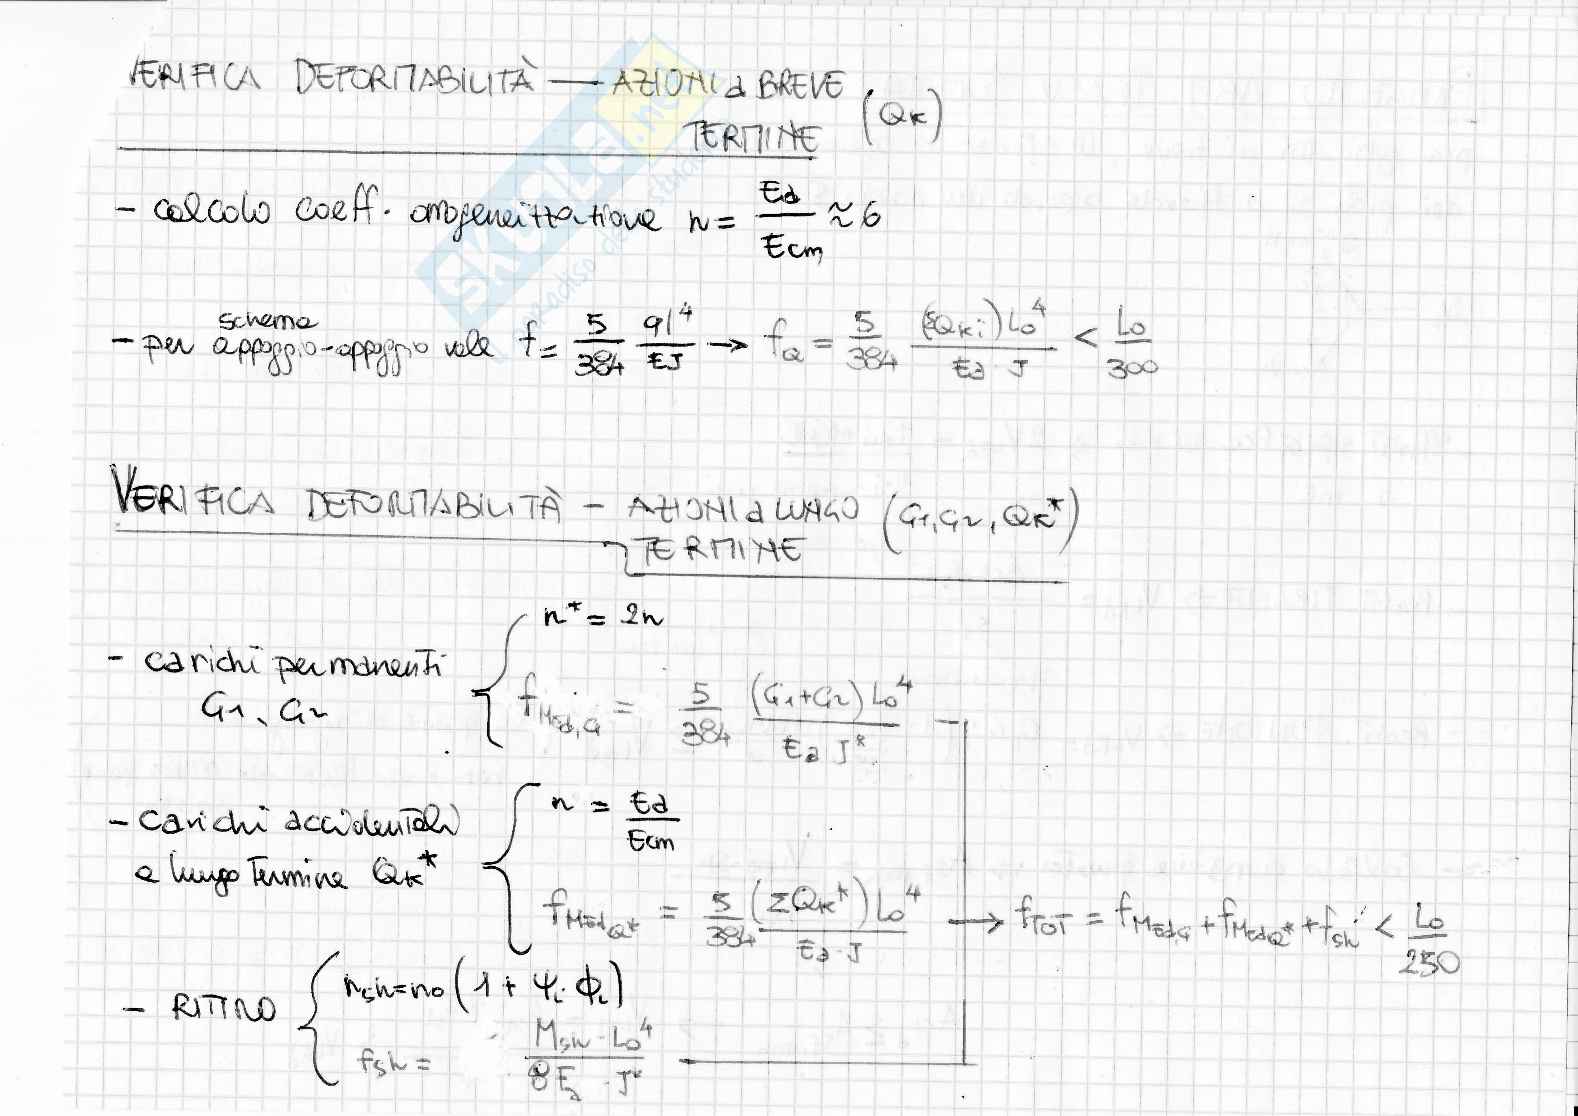 VERIFICA DEFORMABILITÀ — AZIONI a BREVE TERMINE (Qk)
- calcolo coeff. omogeneizzazione n = Ea/Ecm ≈ 6
- per schema appoggio-appoggio vale f = 5/384 ql⁴/EJ → fQ = 5/384 (ΣQki)Lo⁴/(Ea · J) < Lo/300
VERIFICA DEFORMABILITÀ - AZIONI a LUNGO TERMINE (G1, G2, Qk*)
n* = 2n
- carichi permanenti G1, G2
fMEd,G = 5/384 (G1+G2)Lo⁴/(Ea J*)
- carichi accidentali a lungo termine Qk*
n = Ea/Ecm
fMEdQ* = 5/384 (ΣQk*)Lo⁴/(Ea · J) → fTOT = fMEdG + fMEdQ* + fsh < Lo/250
- RITIRO
nsh = no(1 + Ψi · Φi)
fsh = Msh · Lo⁴/(8 Ea · J*)
SKUOLA.net
paradiso de stude